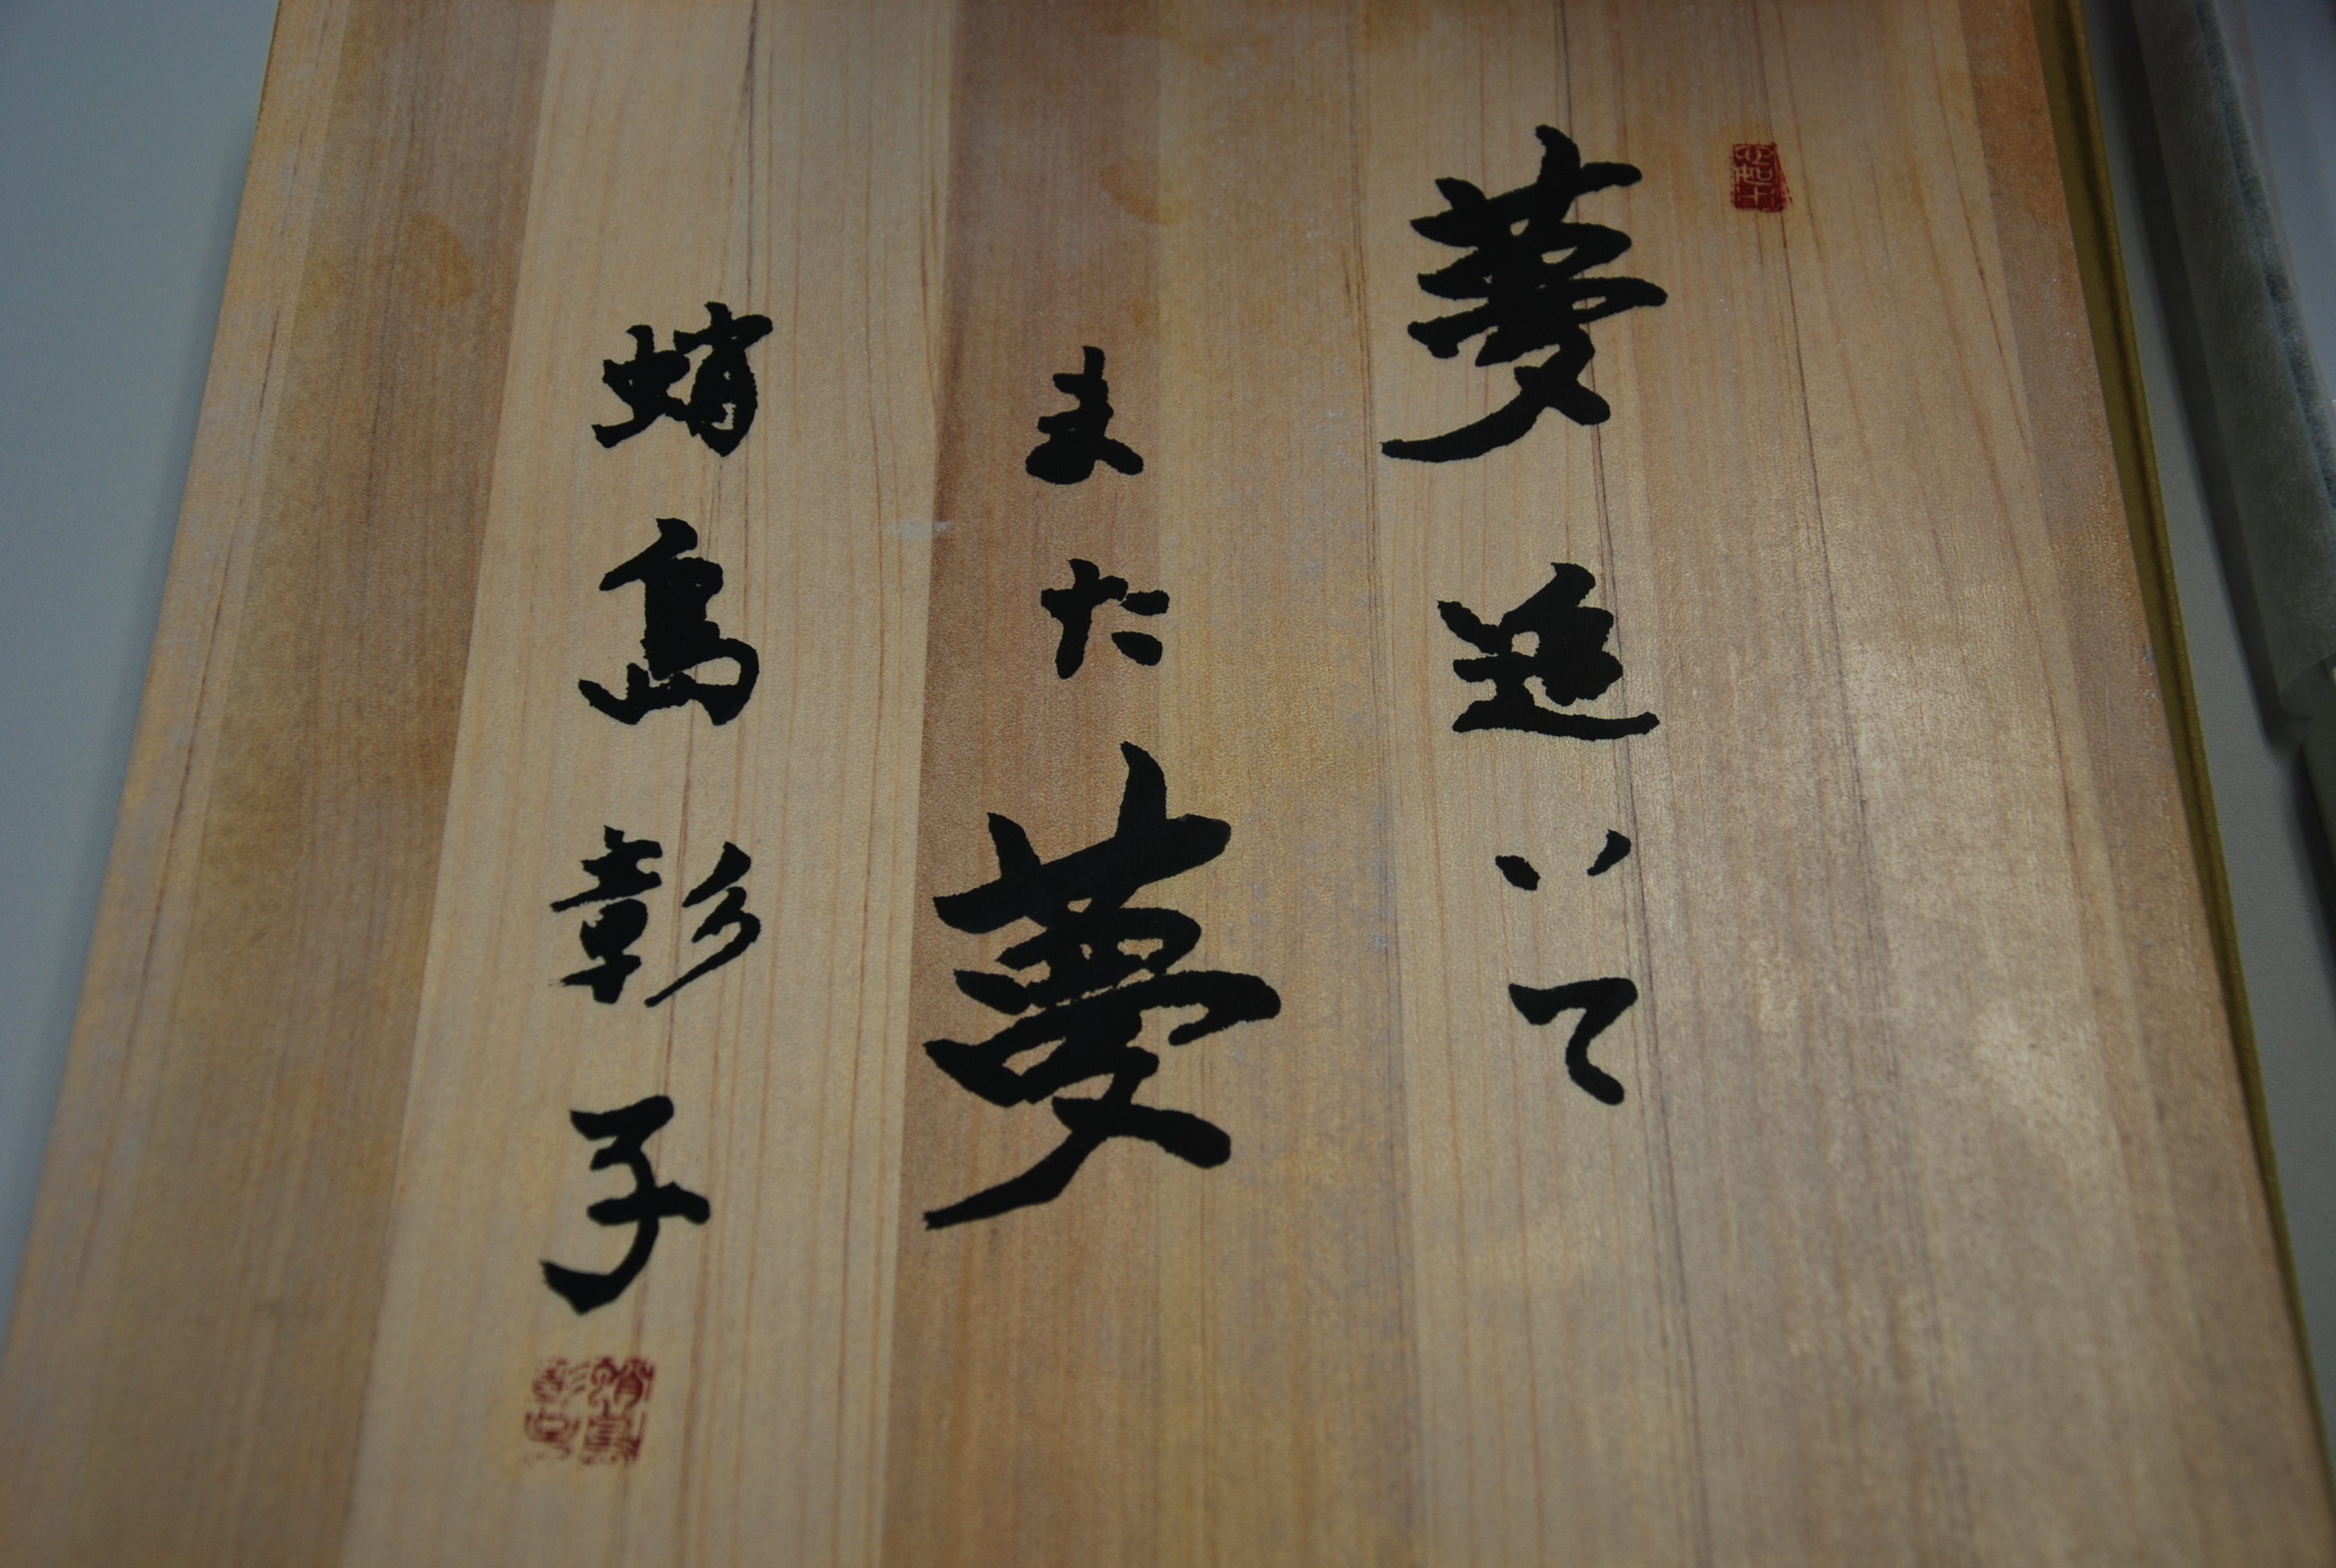 夢追いて
また夢
蛸島彰子